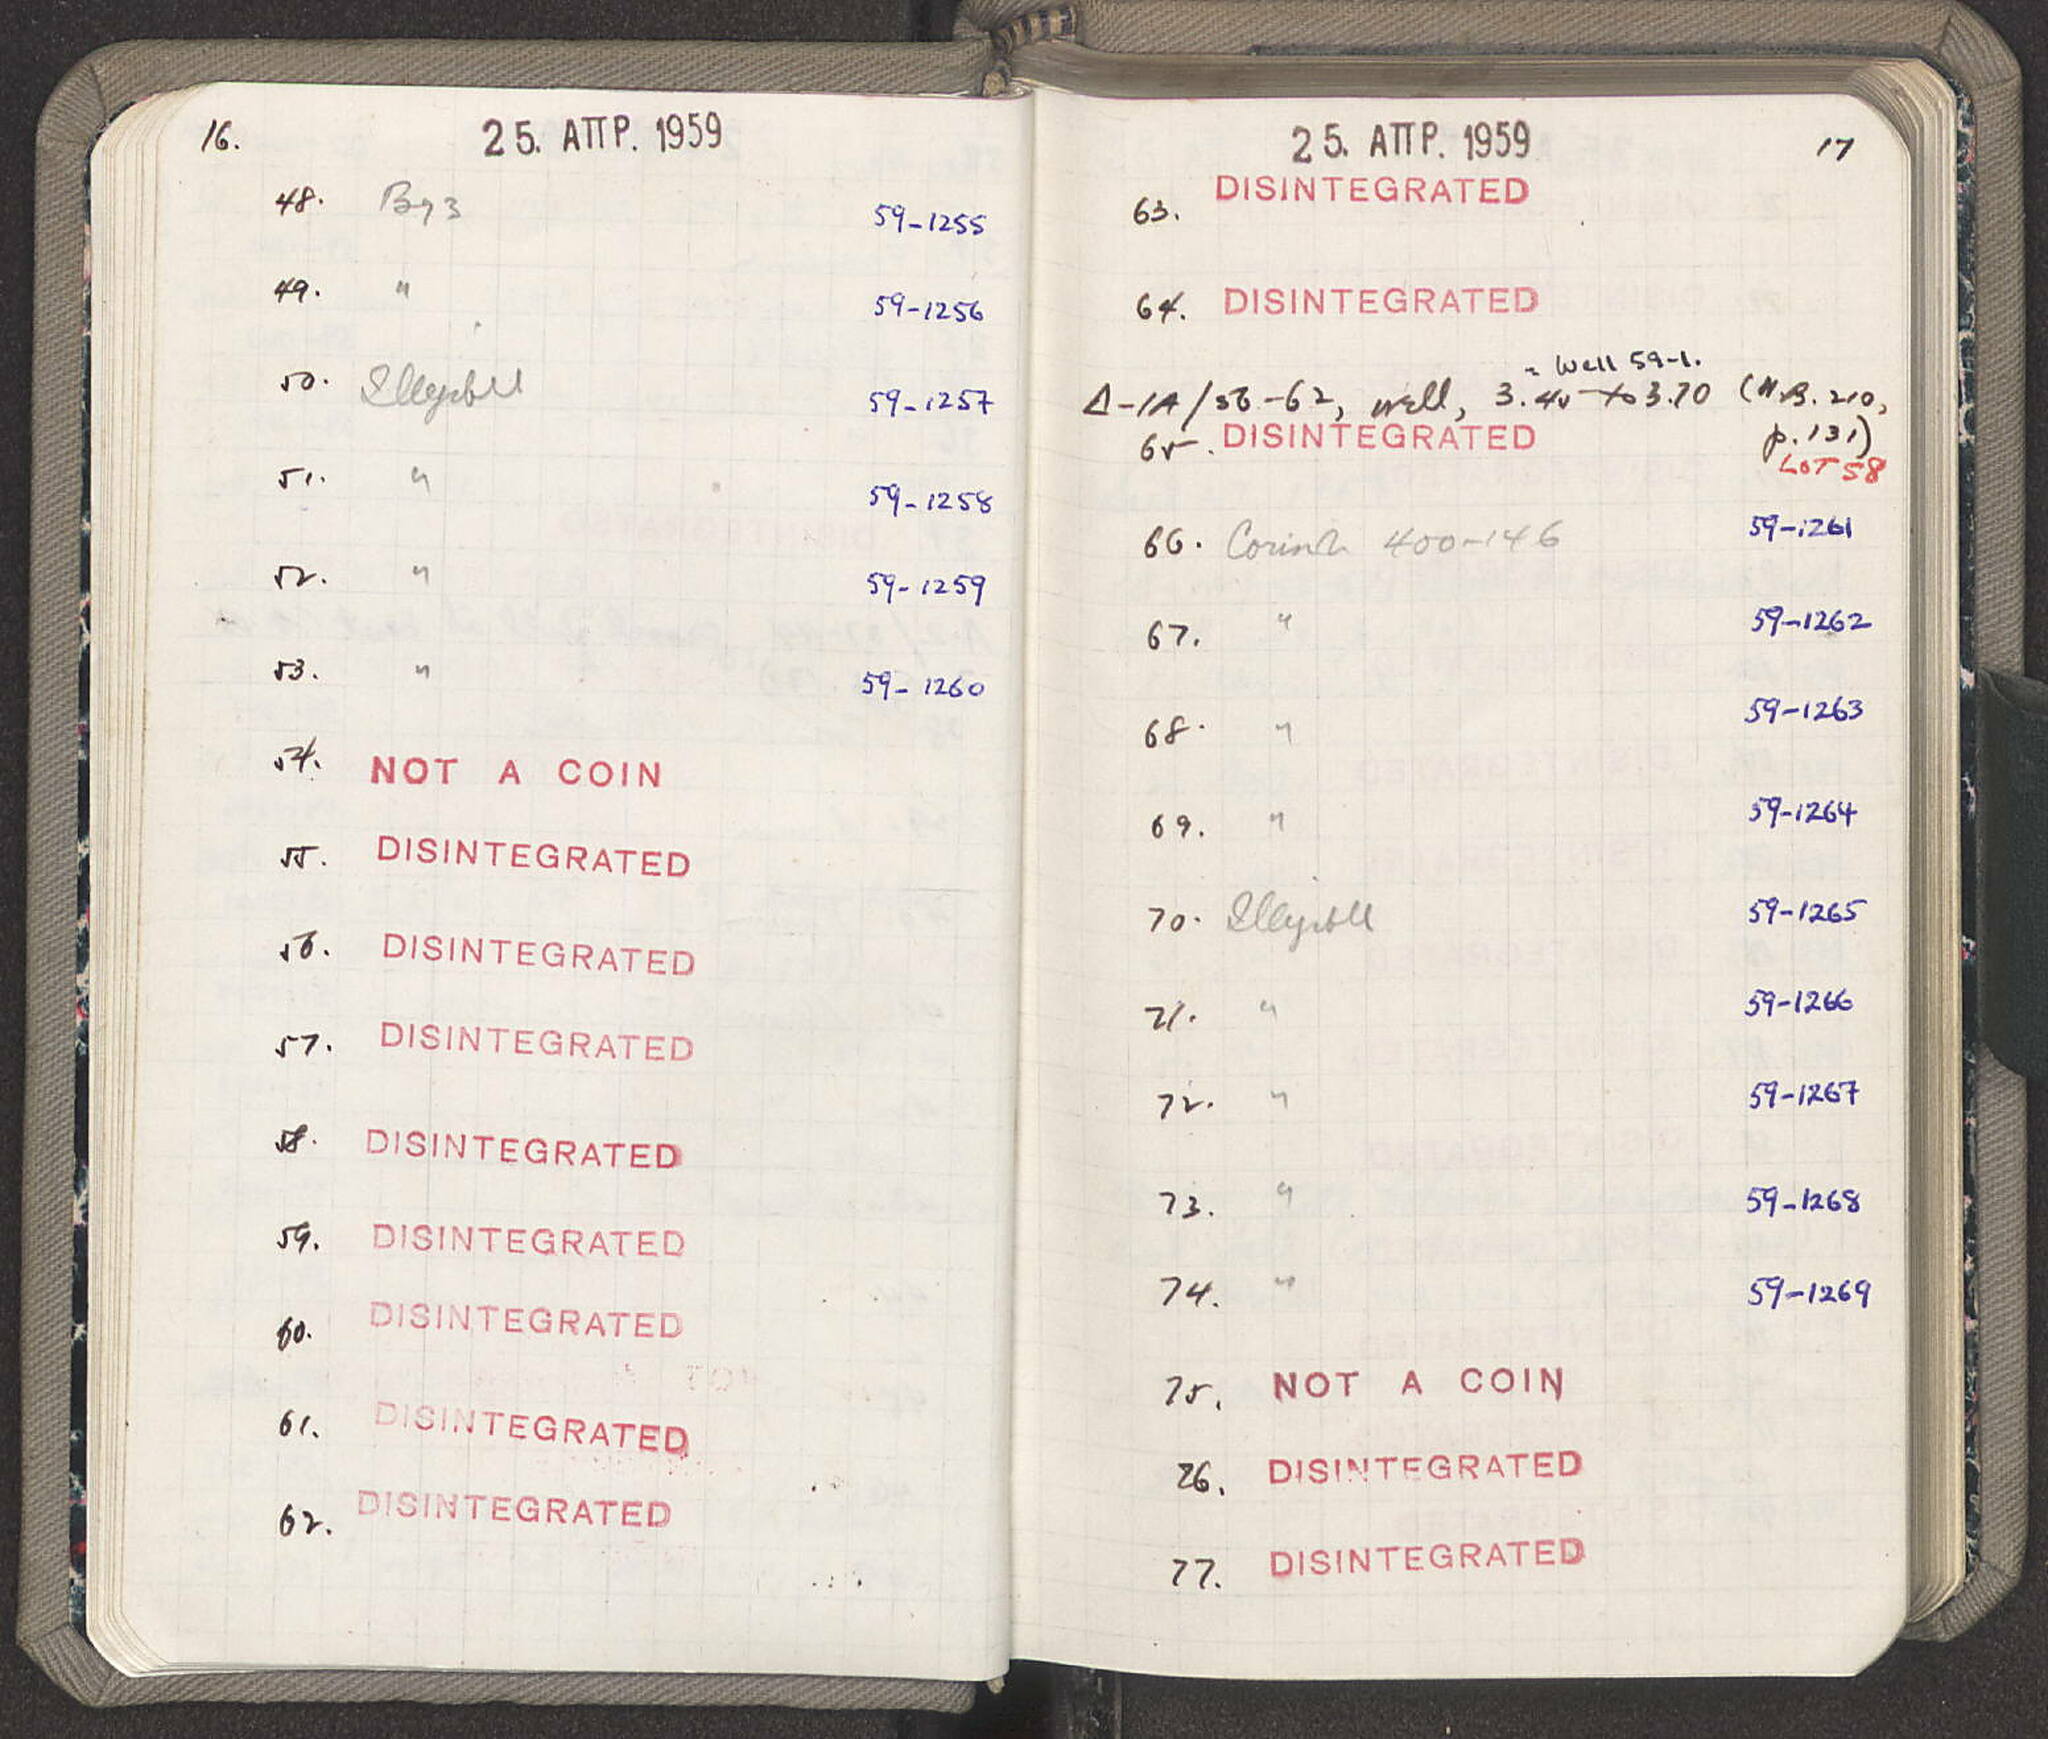 16.
25. ΑΠΡ. 1959
48. Byz 59-1255
49. " 59-1256
50. Illegible 59-1257
51. " 59-1258
52. " 59-1259
53. " 59-1260
54. NOT A COIN
55. DISINTEGRATED
56. DISINTEGRATED
57. DISINTEGRATED
58. DISINTEGRATED
59. DISINTEGRATED
60. DISINTEGRATED
61. DISINTEGRATED
62. DISINTEGRATED
25. ΑΠΡ. 1959
17
63. DISINTEGRATED
64. DISINTEGRATED
= Well 59-1.
Δ-1A/56-62, well, 3.40 to 3.70 (N.B. 210,
p. 131)
65. DISINTEGRATED
LOT 58
66. Corinth 400-146 59-1261
67. " 59-1262
68. " 59-1263
69. " 59-1264
70. Illegible 59-1265
71. " 59-1266
72. " 59-1267
73. " 59-1268
74. " 59-1269
75. NOT A COIN
76. DISINTEGRATED
77. DISINTEGRATED